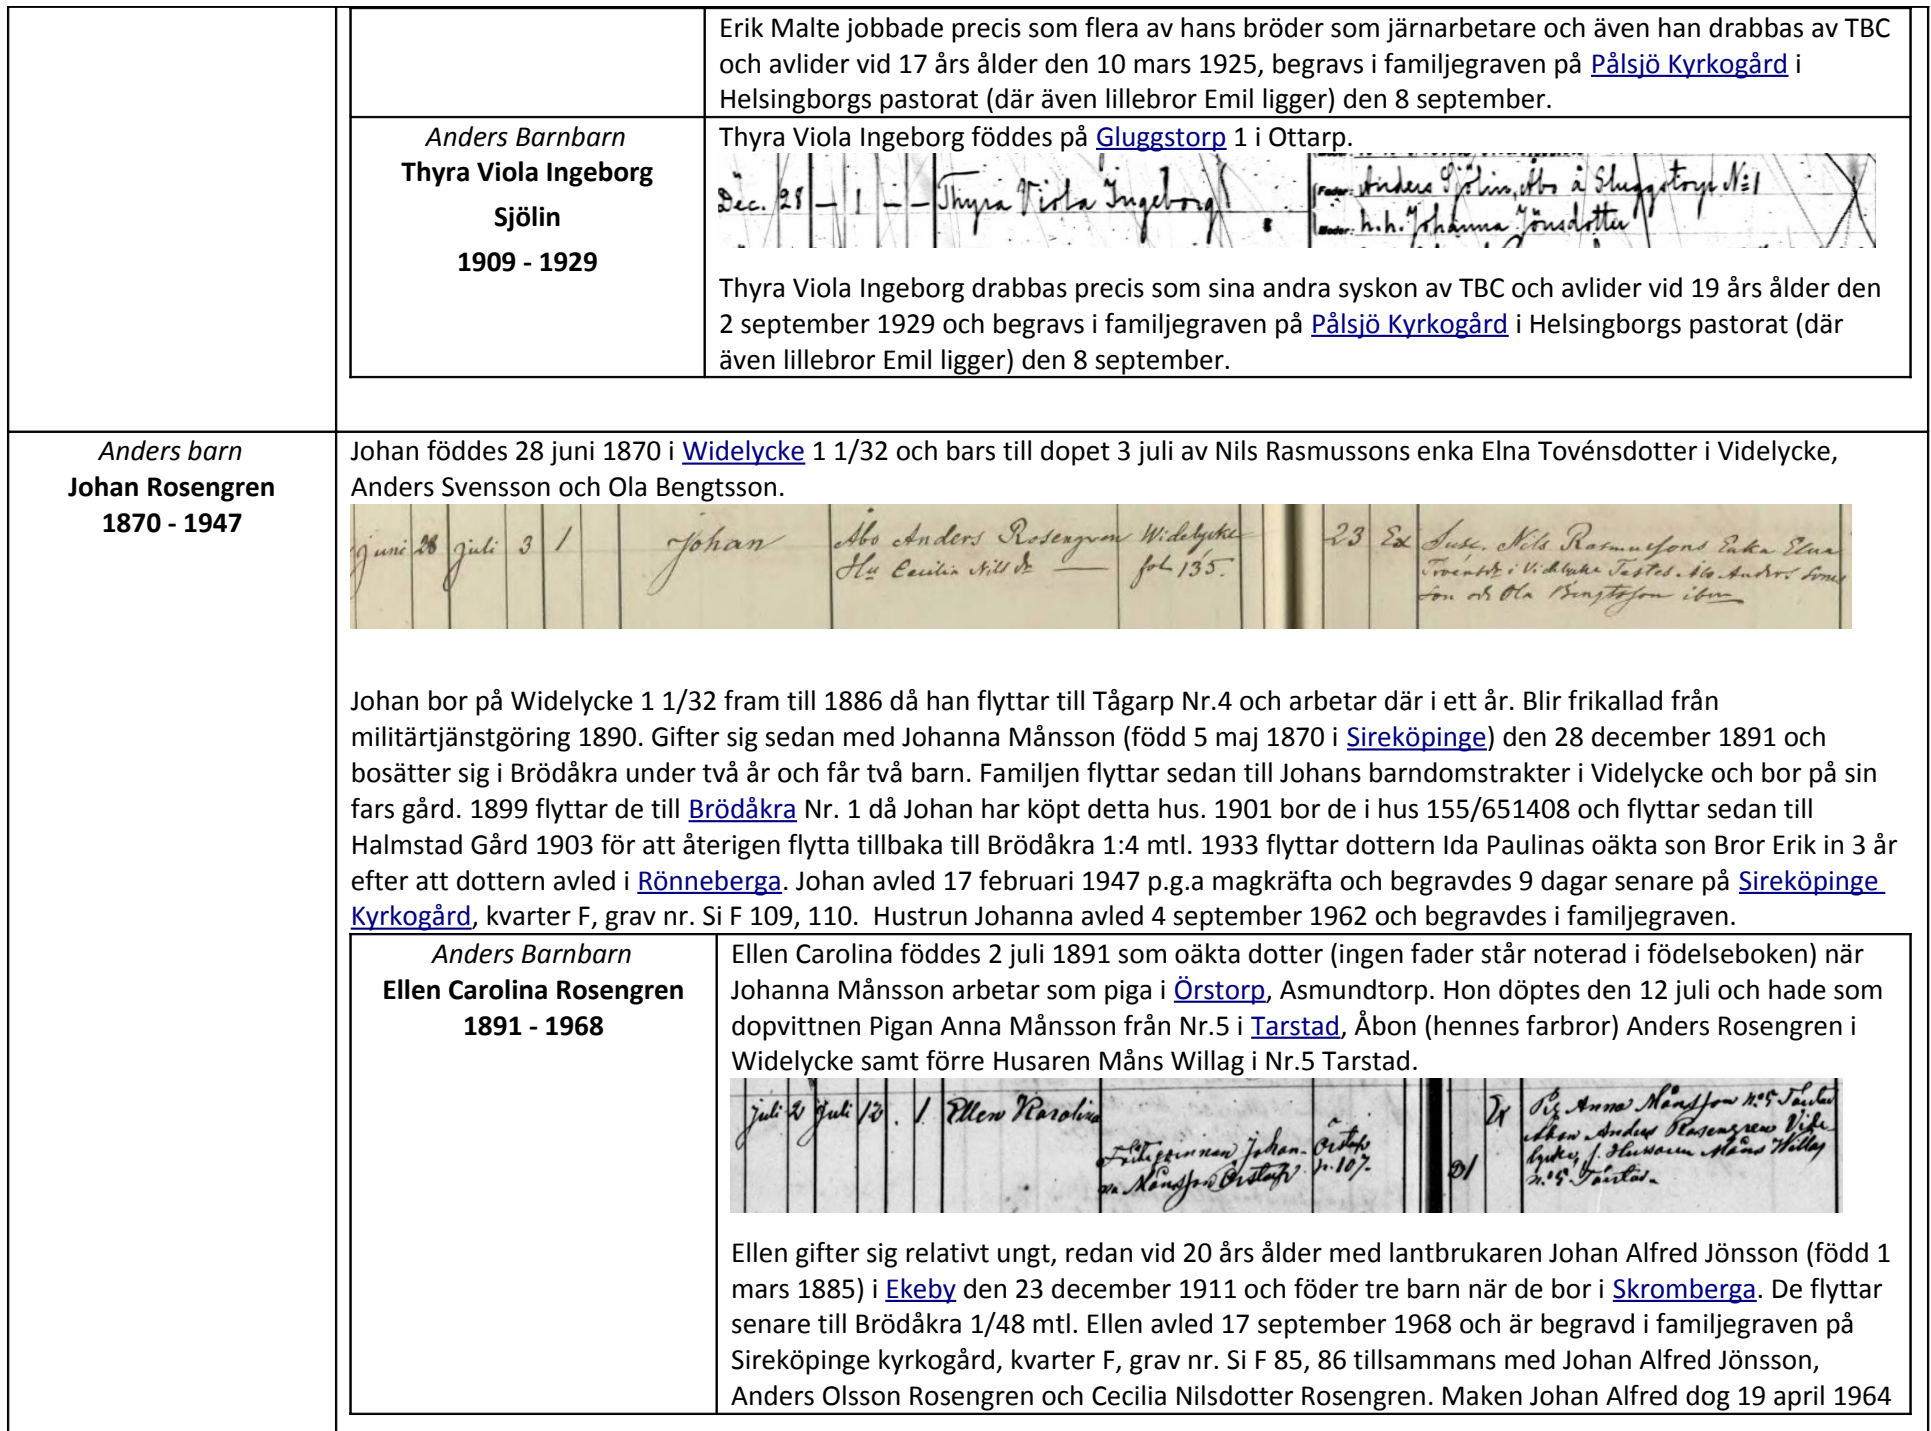 Erik Malte jobbade precis som flera av hans bröder som järnarbetare och även han drabbas av TBC
och avlider vid 17 års ålder den 10 mars 1925, begravs i familjegraven på Pålsjö Kyrkogård i
Helsingborgs pastorat (där även lillebror Emil ligger) den 8 september.
Anders Barnbarn
Thyra Viola Ingeborg
Sjölin
1909 - 1929
Thyra Viola Ingeborg föddes på Gluggstorp 1 i Ottarp.
Fader: Anders Sjölin, Åbo å Gluggstorp No 1
Dec. 28 – 1 – – Thyra Viola Ingeborg
Moder: h.h. Johanna Jönsdotter
Thyra Viola Ingeborg drabbas precis som sina andra syskon av TBC och avlider vid 19 års ålder den
2 september 1929 och begravs i familjegraven på Pålsjö Kyrkogård i Helsingborgs pastorat (där
även lillebror Emil ligger) den 8 september.
Anders barn
Johan Rosengren
1870 - 1947
Johan föddes 28 juni 1870 i Widelycke 1 1/32 och bars till dopet 3 juli av Nils Rasmussons enka Elna Tovénsdotter i Videlycke,
Anders Svensson och Ola Bengtsson.
juni 28 juli 3 1 Johan Åbo Anders Rosengren Widelycke 23 Ex Susc. Nils Rasmussons Enka Elna
Hu Cecilia Nilsdr — fol 135. Tovénsdr i Videlycke Testes Åbo Anders Svens
son och Ola Bengtsson ibm
Johan bor på Widelycke 1 1/32 fram till 1886 då han flyttar till Tågarp Nr.4 och arbetar där i ett år. Blir frikallad från
militärtjänstgöring 1890. Gifter sig sedan med Johanna Månsson (född 5 maj 1870 i Sireköpinge) den 28 december 1891 och
bosätter sig i Brödåkra under två år och får två barn. Familjen flyttar sedan till Johans barndomstrakter i Videlycke och bor på sin
fars gård. 1899 flyttar de till Brödåkra Nr. 1 då Johan har köpt detta hus. 1901 bor de i hus 155/651408 och flyttar sedan till
Halmstad Gård 1903 för att återigen flytta tillbaka till Brödåkra 1:4 mtl. 1933 flyttar dottern Ida Paulinas oäkta son Bror Erik in 3 år
efter att dottern avled i Rönneberga. Johan avled 17 februari 1947 p.g.a magkräfta och begravdes 9 dagar senare på Sireköpinge
Kyrkogård, kvarter F, grav nr. Si F 109, 110. Hustrun Johanna avled 4 september 1962 och begravdes i familjegraven.
Anders Barnbarn
Ellen Carolina Rosengren
1891 - 1968
Ellen Carolina föddes 2 juli 1891 som oäkta dotter (ingen fader står noterad i födelseboken) när
Johanna Månsson arbetar som piga i Örstorp, Asmundtorp. Hon döptes den 12 juli och hade som
dopvittnen Pigan Anna Månsson från Nr.5 i Tarstad, Åbon (hennes farbror) Anders Rosengren i
Widelycke samt förre Husaren Måns Willag i Nr.5 Tarstad.
juli 2 juli 12 . 1. Ellen Karolina Ex Pig. Anna Månsson No 5 Tarstad
Åbon Anders Rosengren Vide-
Johan- Örstorp lycke, f. Husaren Måns Willag
na Månsson Örstorp p. 107. 21 No 5 Tarstad.
Ellen gifter sig relativt ungt, redan vid 20 års ålder med lantbrukaren Johan Alfred Jönsson (född 1
mars 1885) i Ekeby den 23 december 1911 och föder tre barn när de bor i Skromberga. De flyttar
senare till Brödåkra 1/48 mtl. Ellen avled 17 september 1968 och är begravd i familjegraven på
Sireköpinge kyrkogård, kvarter F, grav nr. Si F 85, 86 tillsammans med Johan Alfred Jönsson,
Anders Olsson Rosengren och Cecilia Nilsdotter Rosengren. Maken Johan Alfred dog 19 april 1964